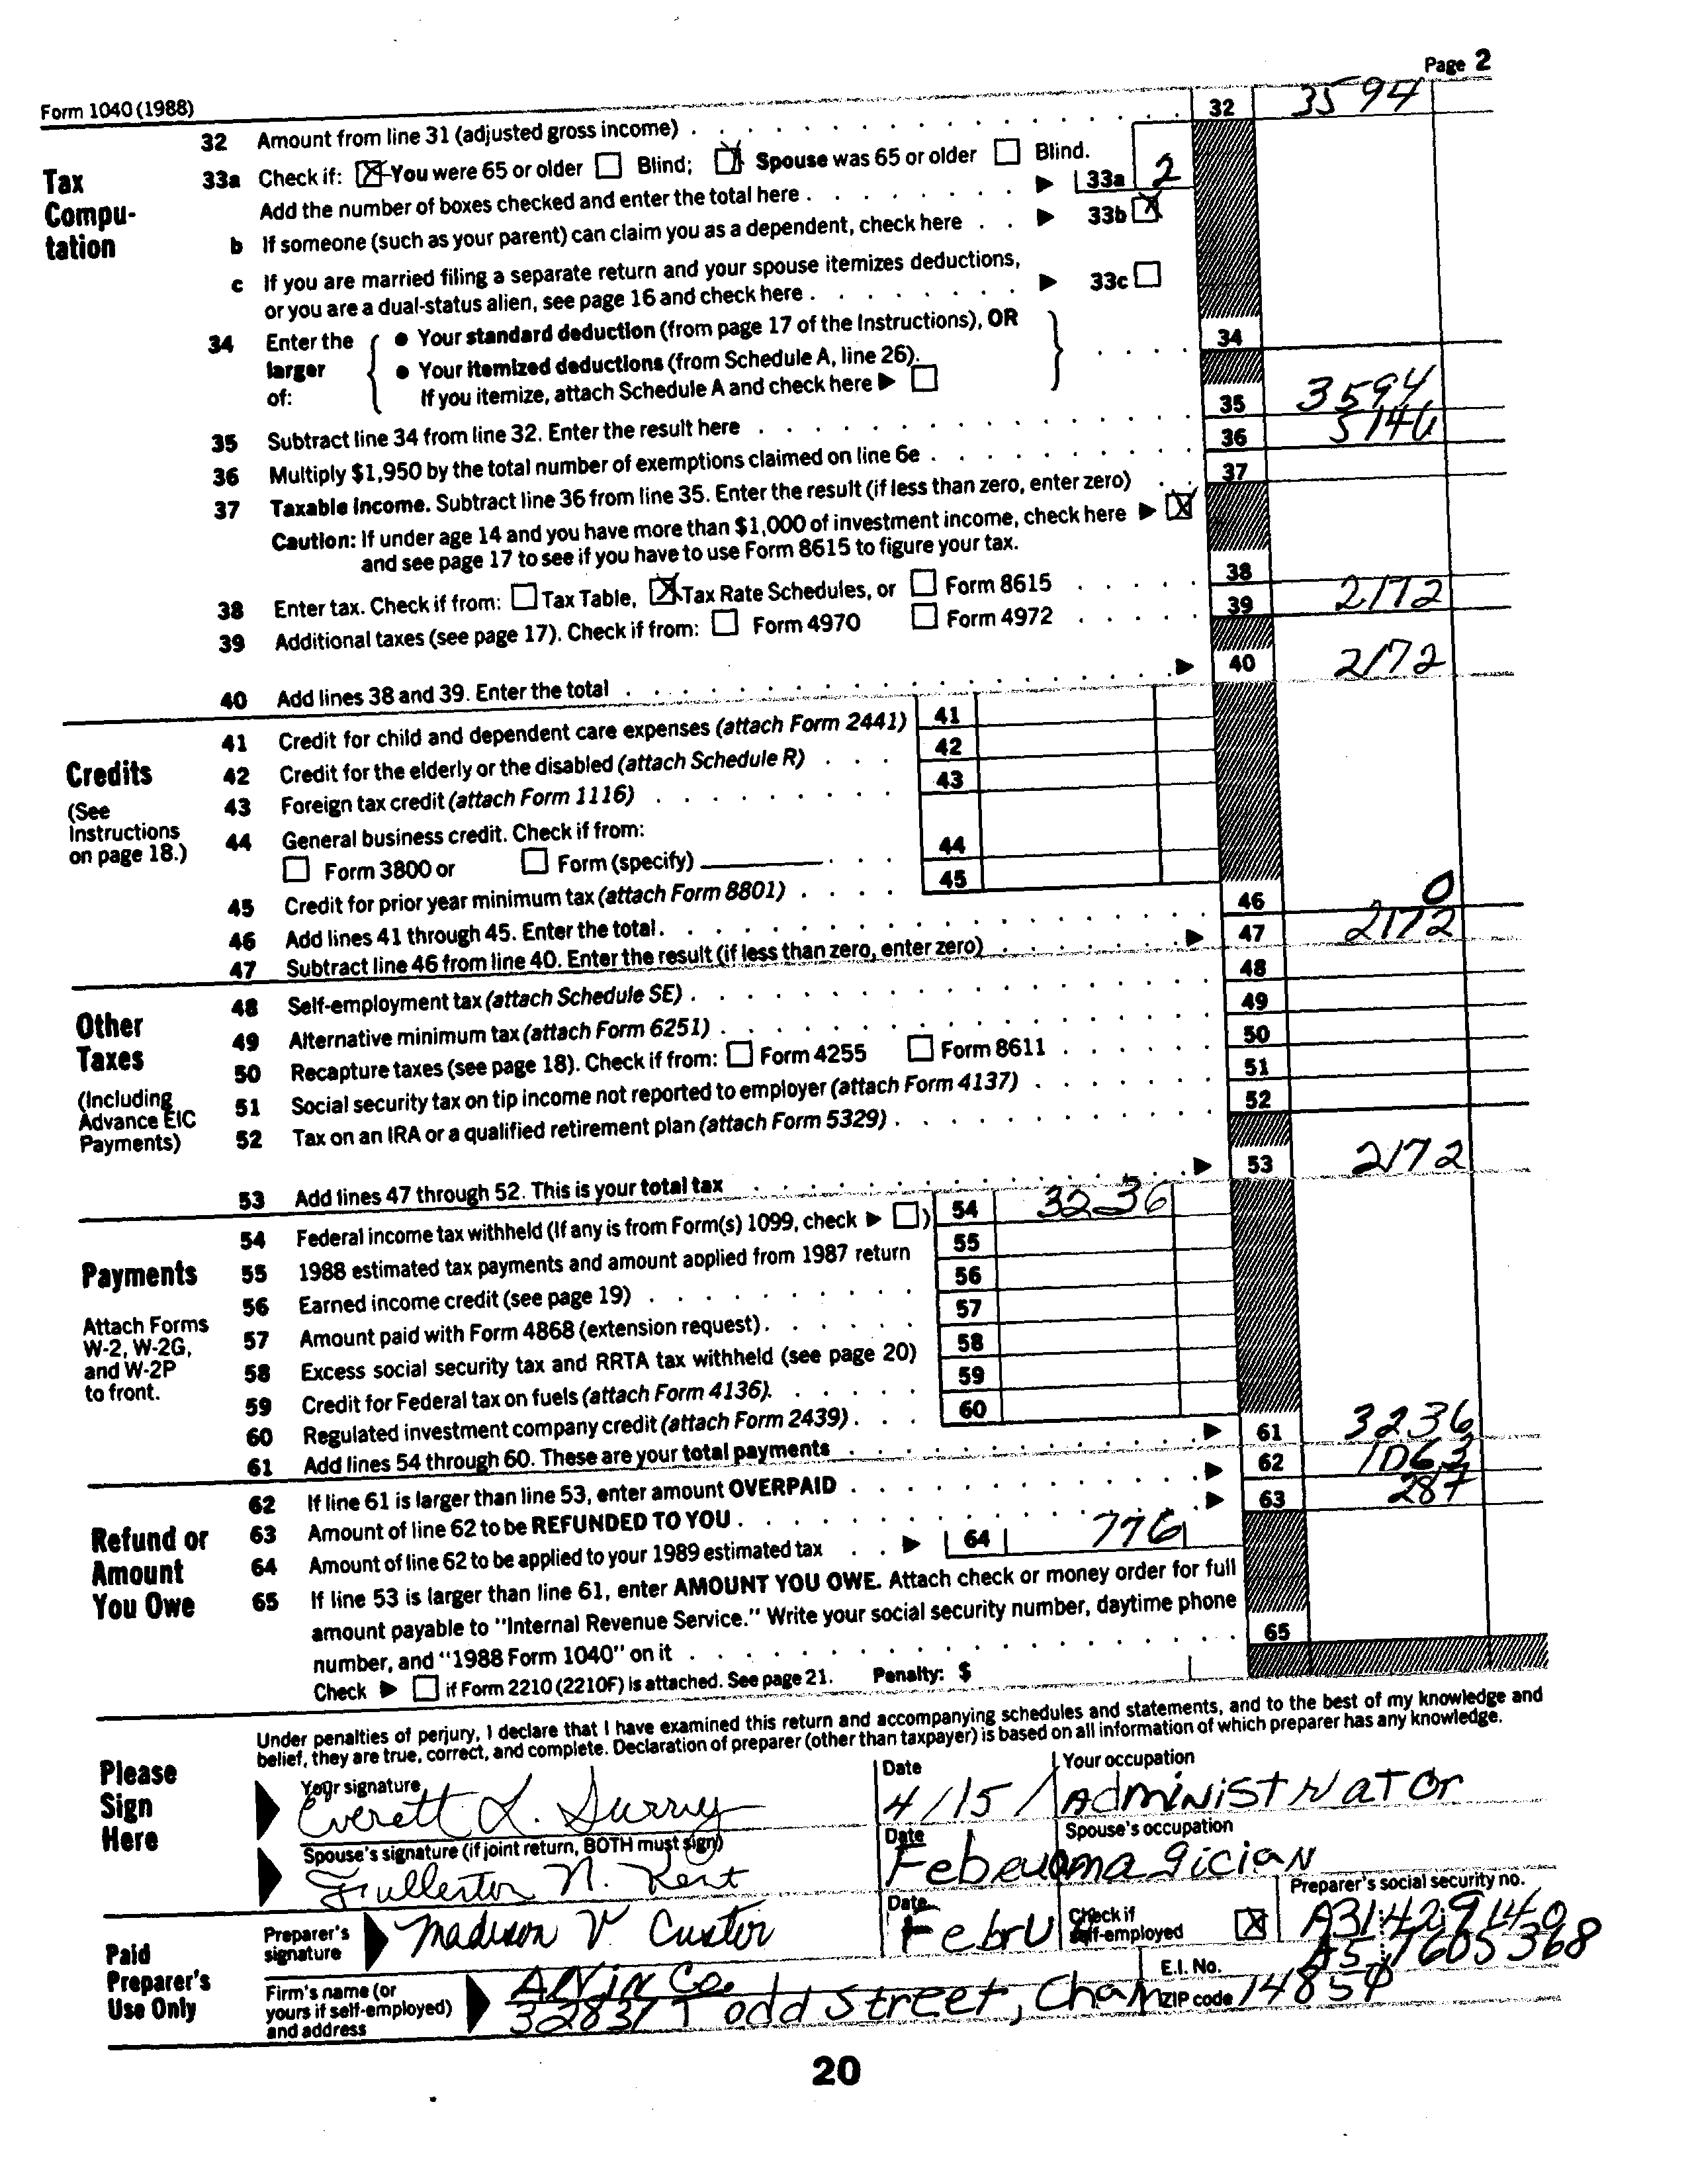 Page 2
Form 1040 (1988)
32 Amount from line 31 (adjusted gross income) 32 3594
Tax Compu-tation
33a Check if: ☒ You were 65 or older ☐ Blind; ☒ Spouse was 65 or older ☐ Blind.
Add the number of boxes checked and enter the total here ▶ 33a 2
b If someone (such as your parent) can claim you as a dependent, check here ▶ 33b ☒
c If you are married filing a separate return and your spouse itemizes deductions,
or you are a dual-status alien, see page 16 and check here ▶ 33c ☐
34 Enter the larger of: { ● Your standard deduction (from page 17 of the Instructions), OR
● Your itemized deductions (from Schedule A, line 26).
If you itemize, attach Schedule A and check here ▶ ☐ } 34
35 Subtract line 34 from line 32. Enter the result here 35 3594
36 Multiply $1,950 by the total number of exemptions claimed on line 6e 36 5146
37 Taxable income. Subtract line 36 from line 35. Enter the result (if less than zero, enter zero) 37
Caution: If under age 14 and you have more than $1,000 of investment income, check here ▶ ☒
and see page 17 to see if you have to use Form 8615 to figure your tax.
38 Enter tax. Check if from: ☐ Tax Table, ☒ Tax Rate Schedules, or ☐ Form 8615 38
39 Additional taxes (see page 17). Check if from: ☐ Form 4970 ☐ Form 4972 39 2172
40 Add lines 38 and 39. Enter the total ▶ 40 2172
Credits
(See Instructions on page 18.)
41 Credit for child and dependent care expenses (attach Form 2441) 41
42 Credit for the elderly or the disabled (attach Schedule R) 42
43 Foreign tax credit (attach Form 1116) 43
44 General business credit. Check if from:
☐ Form 3800 or ☐ Form (specify) 44
45 Credit for prior year minimum tax (attach Form 8801) 45
46 Add lines 41 through 45. Enter the total 46 0
47 Subtract line 46 from line 40. Enter the result (if less than zero, enter zero) ▶ 47 2172
Other Taxes
(Including Advance EIC Payments)
48 Self-employment tax (attach Schedule SE) 48
49 Alternative minimum tax (attach Form 6251) 49
50 Recapture taxes (see page 18). Check if from: ☐ Form 4255 ☐ Form 8611 50
51 Social security tax on tip income not reported to employer (attach Form 4137) 51
52 Tax on an IRA or a qualified retirement plan (attach Form 5329) 52
53 Add lines 47 through 52. This is your total tax ▶ 53 2172
Payments
Attach Forms W-2, W-2G, and W-2P to front.
54 Federal income tax withheld (If any is from Form(s) 1099, check ▶ ☐ ) 54 3236
55 1988 estimated tax payments and amount applied from 1987 return 55
56 Earned income credit (see page 19) 56
57 Amount paid with Form 4868 (extension request) 57
58 Excess social security tax and RRTA tax withheld (see page 20) 58
59 Credit for Federal tax on fuels (attach Form 4136) 59
60 Regulated investment company credit (attach Form 2439) 60
61 Add lines 54 through 60. These are your total payments ▶ 61 3236
Refund or Amount You Owe
62 If line 61 is larger than line 53, enter amount OVERPAID ▶ 62 1063
63 Amount of line 62 to be REFUNDED TO YOU ▶ 63 287
64 Amount of line 62 to be applied to your 1989 estimated tax ▶ 64 776
65 If line 53 is larger than line 61, enter AMOUNT YOU OWE. Attach check or money order for full
amount payable to "Internal Revenue Service." Write your social security number, daytime phone
number, and "1988 Form 1040" on it 65
Check ▶ ☐ if Form 2210 (2210F) is attached. See page 21. Penalty: $
Please Sign Here
Under penalties of perjury, I declare that I have examined this return and accompanying schedules and statements, and to the best of my knowledge and
belief, they are true, correct, and complete. Declaration of preparer (other than taxpayer) is based on all information of which preparer has any knowledge.
Your signature Everett L. Surry Date 4/15/ Your occupation Administrator
Spouse's signature (if joint return, BOTH must sign) Fullerton N. Kent Date Spouse's occupation magician
Paid Preparer's Use Only
Preparer's signature Madison V. Custer Date Febru Check if self-employed ☒ Preparer's social security no. A31429140
Firm's name (or yours if self-employed) and address E.I. No. A51605368
32831 Todd Street, Cham ZIP code 14854
20